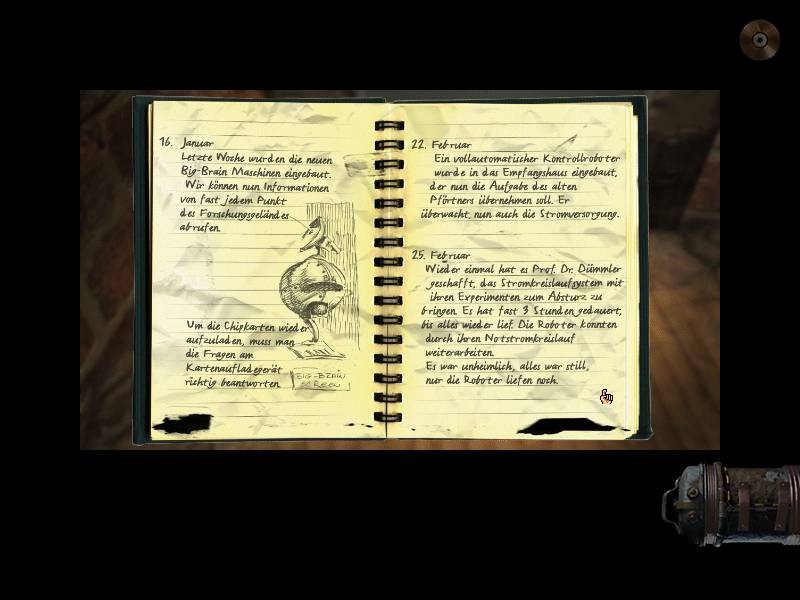 16. Januar
Letzte Woche wurden die neuen
Big-Brain Maschinen eingebaut.
Wir können nun Informationen
von fast jedem Punkt
des Forschungsgeländes
abrufen.
Um die Chipkarten wieder
aufzuladen, muss man
die Fragen am
Kartenaufladegerät
richtig beantworten.
BIG-BRAIN
SCREEN
22. Februar
Ein vollautomatischer Kontrollroboter
wurde in das Empfangshaus eingebaut,
der nun die Aufgabe des alten
Pförtners übernehmen soll. Er
überwacht, nun auch die Stromversorgung.
25. Februar
Wieder einmal hat es Prof. Dr. Dümmler
geschafft, das Stromkreislaufsystem mit
ihren Experimenten zum Absturz zu
bringen. Es hat fast 3 Stunden gedauert,
bis alles wieder lief. Die Roboter konnten
durch ihren Notstromkreislauf
weiterarbeiten.
Es war unheimlich, alles war still,
nur die Roboter liefen noch.